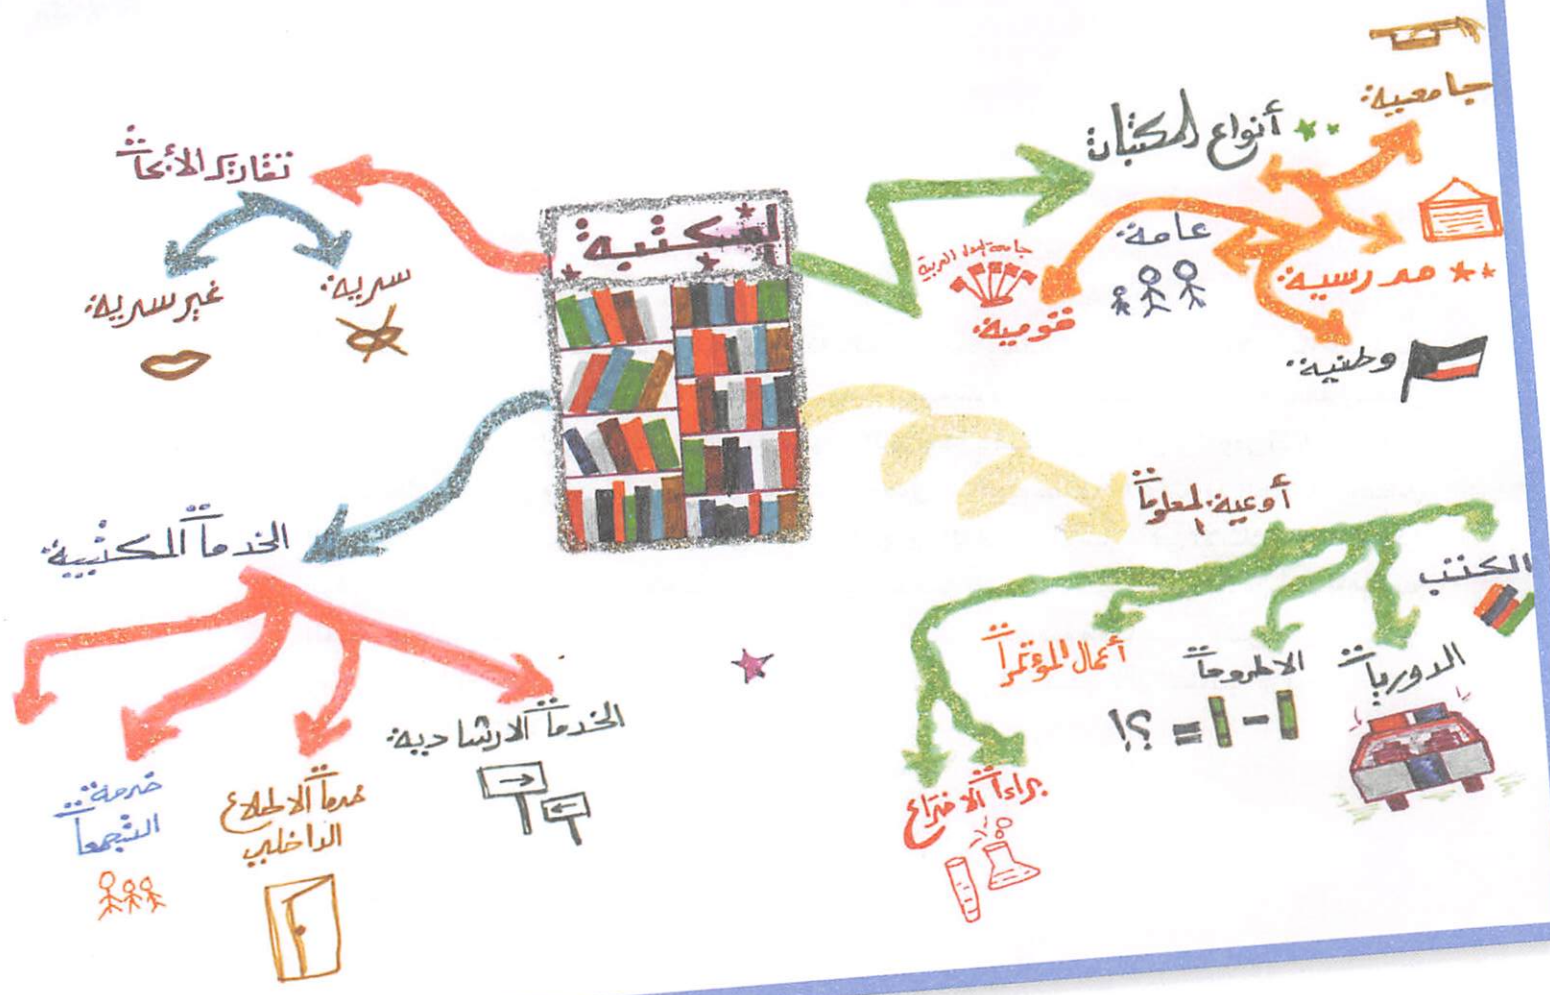 المكتبة
أنواع المكتبات
جامعية
مدرسية
وطنية
عامة
قومية
جامعة الدول العربية
أوعية المعلومات
الكتب
الدوريات
الاطروحات
؟!
أعمال المؤتمرات
براءات الاختراع
تقارير الأبحاث
سرية
غير سرية
الخدمات المكتبية
الخدمات الارشادية
خدمات الاطلاع
الداخلي
خدمة
التجمعات